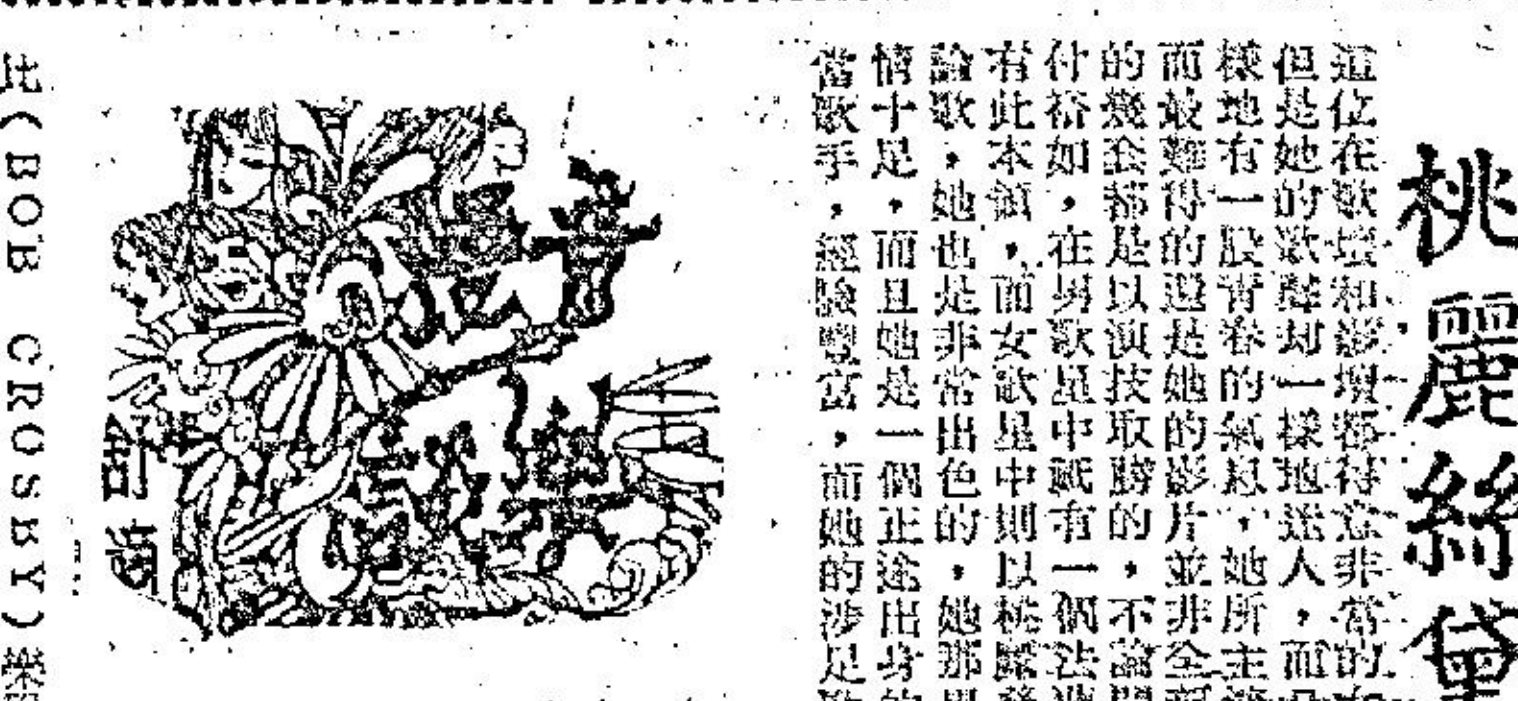 桃麗絲黛
這位在歌壇和影壇都得意非常的
但是她的歌聲却一樣地迷人，而
樣地有一股青春的氣息，她所主
而最難得的還是她的影片，並非全
的幾套都是以演技取勝的，不論
付裕如，在男歌星中祇有一個法
有此本領，而女歌星中則以桃麗
論歌，她也是非常出色的，她那
情十足，而且她是一個正途出身
當歌手，經驗豐富，而她的涉足
(BOB CROSBY)樂